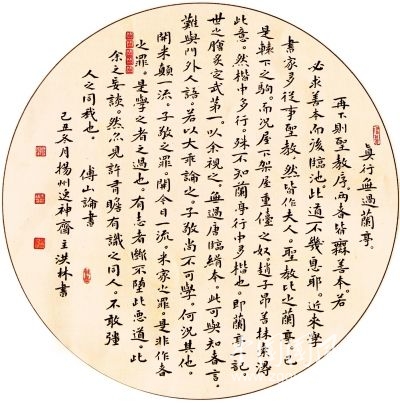 真行無過蘭亭。
再下則聖教序。兩者皆無善本。若
必求善本而後臨池。此道不幾息耶。近來學
書家多從事聖教。然皆作夫人。聖教比之蘭亭。已
是轅下之駒。而況屋下架屋重儓之奴。趙子昂善抹索得
此意。然楷中多行。殊不知蘭亭行中多楷也。即蘭亭一記。
世之膾炙定武第一。以余視之。無過唐臨絹本。此可與知者言。
難與門外人語。若以大乘論之。子敬尚不可學。何況其他。
開米顛一流。子敬之罪。開今日一流。米家之罪。是非作者
之罪。是學之者之過也。有志者斷不墮此惡道。此
余之妄談。然亦見許有瞻有識之同人。不敢強
人之同我也。傅山論書
己丑冬月揚州逸神齋主洪林書